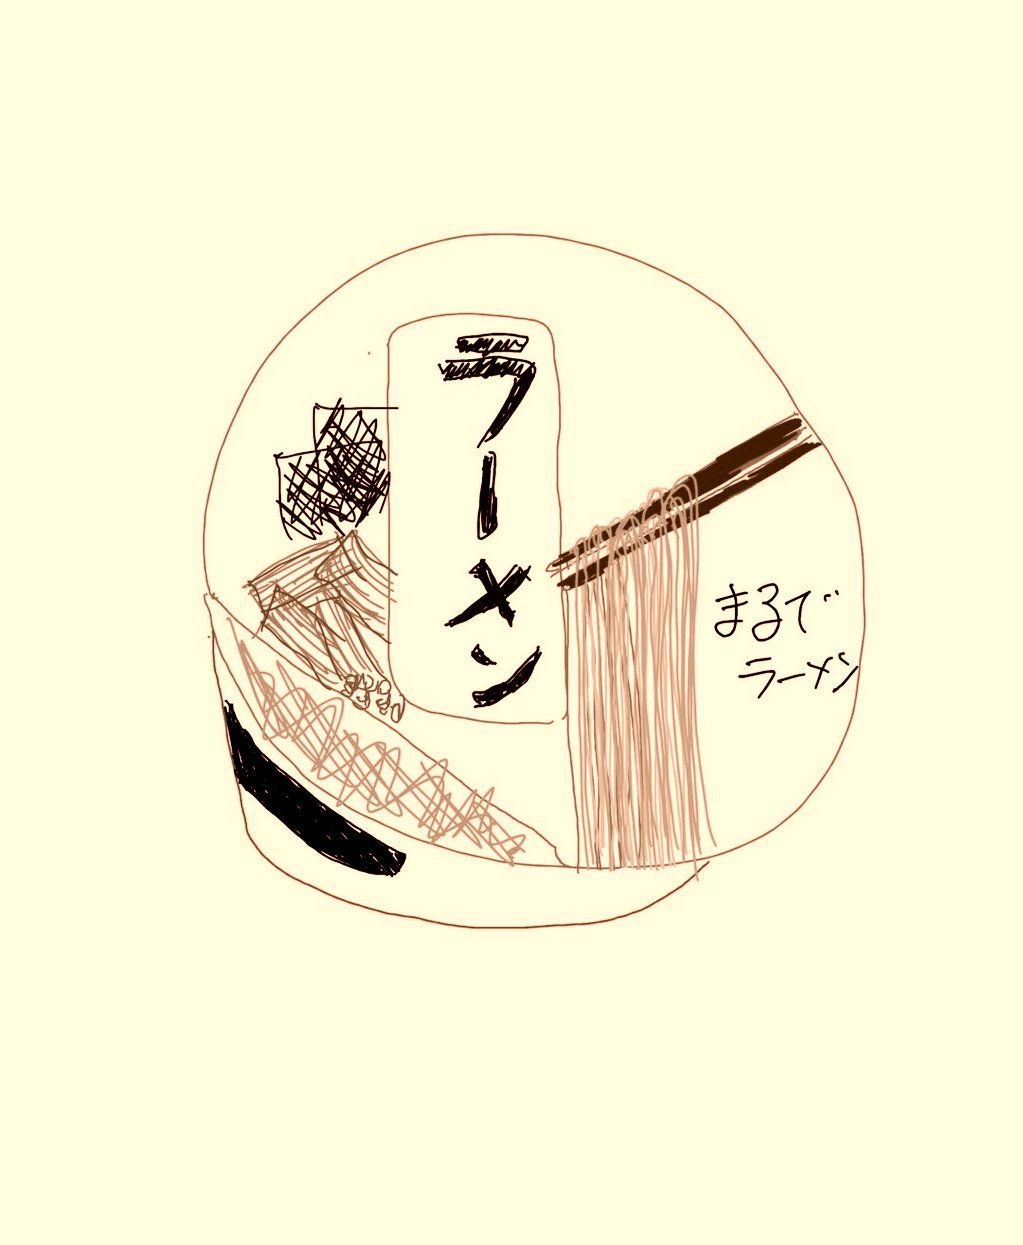 ラーメン
まるで
ラーメン